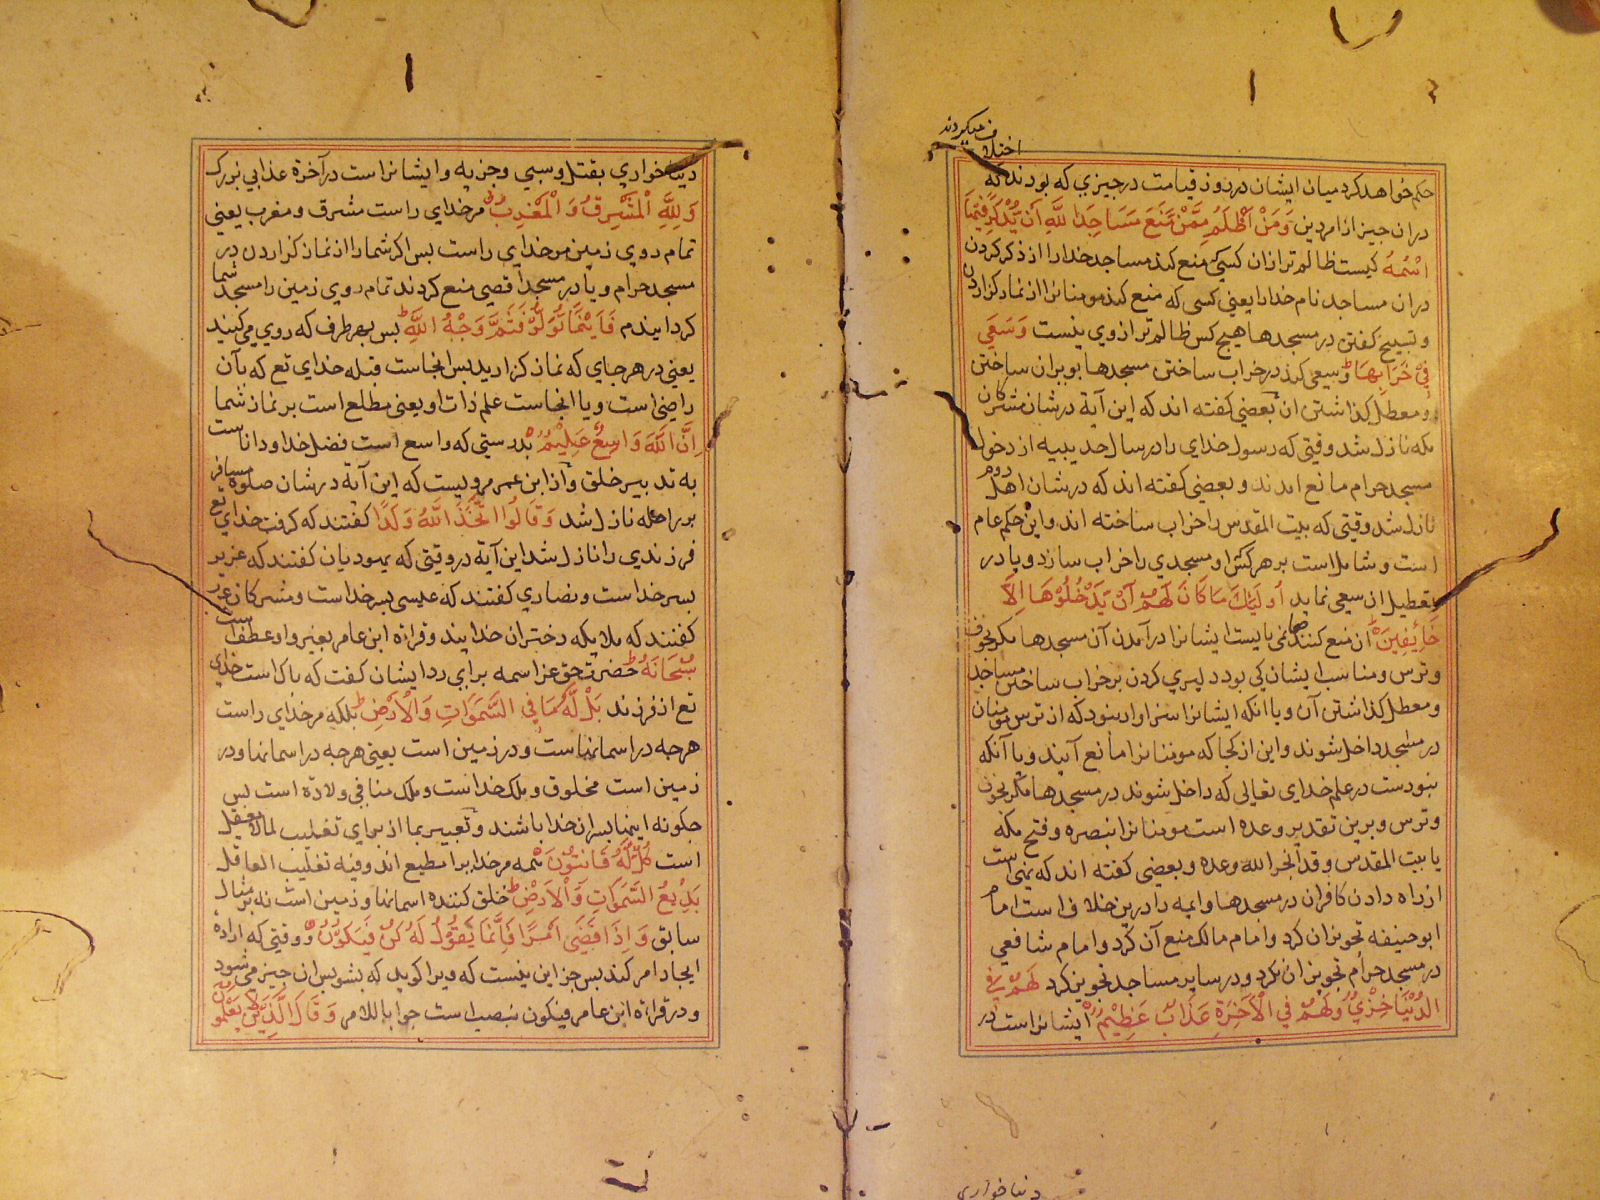 اختلاف میکردند
حکم خواهد کرد میان ایشان در روز قیامت در چیزي که بودند که
در ان چیز از امر دین وَمَنْ اَظْلَمُ مِمَّنْ مَنَعَ مَسَاجِدَ اللَّهِ اَنْ یُذْکَرَ فِیْهَا
اسْمُهُ کیست ظالم تر ازان کسي که منع کند مساجد خدا را از ذکر کردن
در ان مساجد نام خدا را یعني کسي که منع کند مومنانرا از نماز کزاردن
و تسبیح کفتن در مسجدها هیچ کس ظالم تر از وي نیست وَسَعَي
فِيْ خَرَابِهَا وسعي کند در خراب ساختن مسجدها بویران ساختن
و معطل کذاشتن ان بعضي کفته اند که این آیة در شان مشرکان
مکه نازل شد وقتي که رسول خداي را در سال حدیبیه از دخول
مسجد حرام مانع امدند و بعضي کفته اند که در شان اهل روم
نازل شد وقتي که بیت المقدس را خراب ساخته اند و این حکم عام
است و شامل است بر هر کس او مسجدي را خراب سازد و یا در
تعطیل ان سعي نماید اُولَئِكَ مَا کَانَ لَهُمْ اَنْ یَدْخُلُوْهَا اِلَّا
خَائِفِیْنَ ان منع کنندهارا نمي بایست ایشانرا در آمدن آن مسجدها مکر بخوف
و ترس و مناسب ایشان کي بود دلیري کردن بر خراب ساختن مساجد
و معطل کذاشتن آن و یا انکه ایشانرا سزاوار نبود که از ترس مومنان
در مسجد داخل شوند و این از کجا که مومنانرا مانع آیند و یا آنکه
نبودست در علم خداي تعالي که داخل شوند در مسجدها مکر بخوف
و ترس و برین تقدیر وعده است مومنانرا بنصره و فتح مکه
یا بیت المقدس و قد انجز الله وعده و بعضي کفته اند که نهي است
از راه دادن کافران در مسجدها و ایمه را درین خلاف است امام
ابو حنیفه تجویز ان کرد و امام مالک منع آن کرد و امام شافعي
در مسجد حرام تجویز ان نکرد و در سایر مساجد تجویز کرد لَهُمْ فِي
الدُّنْیَا خِزْيٌ وَلَهُمْ فِي الْاَخِرَةِ عَذَابٌ عَظِیْمٌ ایشانراست در
دنیا خواري
دنیا خواري بقتل و سبي و جزیه و ایشانراست در آخرة عذابي بزرك
وَلِلَّهِ الْمَشْرِقُ وَ الْمَغْرِبُ مر خداي راست مشرق و مغرب یعني
تمام روي زمین مر خداي راست پس اکر شما را از نماز کزاردن در
مسجد حرام و یا در مسجد اقصي منع کردند تمام روي زمین را مسجد شما
کردانیدم فَاَیْنَمَا تُوَلُّوْ فَثَمَّ وَجْهُ اللَّهِ پس بهر طرف که روي مي کنید
یعني در هر جاي که نماز کزارید پس انجاست قبله خداي تع که بآن
راضي است و یا انجاست علم ذات او یعني مطلع است بر نماز شما
اِنَّ اللَّهَ وَاسِعٌ عَلِیْمٌ بدرستي که واسع است فضل خدا و داناست
به تدبیر خلق و از ابن عمر مرویست که این آیة در شان صلوة مسافر
بر راحله نازل شد وَقَالُوا اتَّخَذَ اللَّهُ وَلَدًا کفتند که کرفت خداي تع
فرزندي را نازل شد این آیة در وقتي که یهودیان کفتند که عزیر
پسر خداست و نصاري کفتند که عیسي پسر خداست و مشرکان عرب
کفتند که ملایکه دختران خدایند و قراة ابن عامر بغیر واو عطف است
سُبْحَانَهُ حضرت حق عز اسمه براي رد ایشان کفت که پاك است خداي
تع از فرزند بَلْ لَهُ مَا فِي السَّمَوَاتِ وَ الْاَرْضِ بلکه مر خداي راست
هرچه در اسمانهاست و در زمین است یعني هرچه در اسمانها و در
زمین است مخلوق و ملك خداست و ملك منافي ولادة است پس
چکونه اینها پسران خدا باشند و تعبیر بما از براي تغلیب لما لا یعقل
است کُلٌّ لَهُ قَانِتُوْنَ همه مر خدا را مطیع اند و فیه تغلیب العاقل
بَدِیْعُ السَّمَوَاتِ وَ الْاَرْضِ خلق کننده اسمانها و زمین است نه بر مثال
سابق وَ اِذَا قَضَي اَمْرًا فَاِنَّمَا یَقُوْلُ لَهُ کُنْ فَیَکُوْنُ و وقتي که ارادة
ایجاد امر کند پس جز این نیست که ویرا کوید که بشو پس ان چیز مي شود
و در قراءة ابن عامر فیکون بنصب است جوابا للامر وَ قَالَ الَّذِیْنَ لَا یَعْلَمُوْنَ